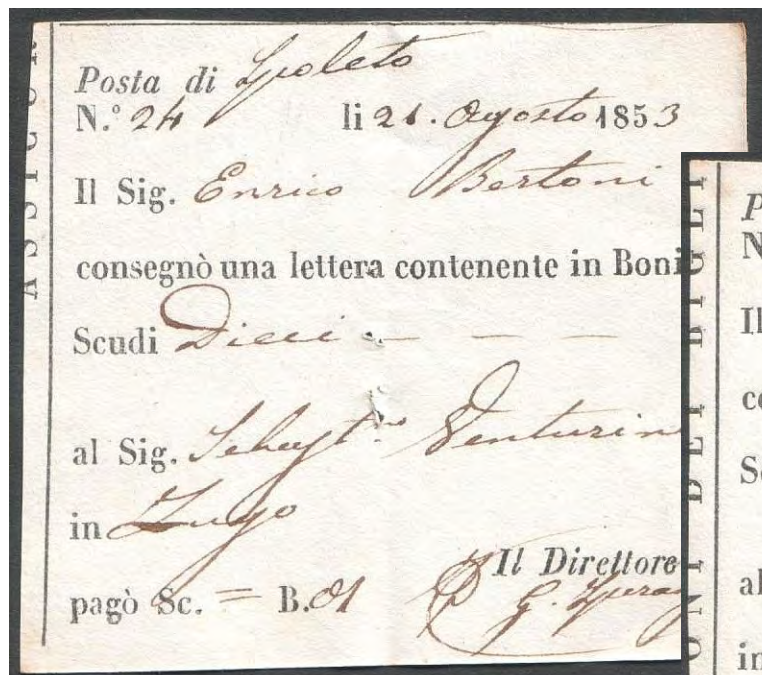 Posta di Spoleto
N.° 24 li 21. Agosto 1853
Il Sig. Enrico Bertoni
consegnò una lettera contenente in Boni
Scudi Dieci - - - -
al Sig. Venturin
in Lugo
pagò Sc. = B. 01
Il Direttore
G.
ASSICUR
ONI DEI BIGLI
P
N
Il
co
Sc
al
in